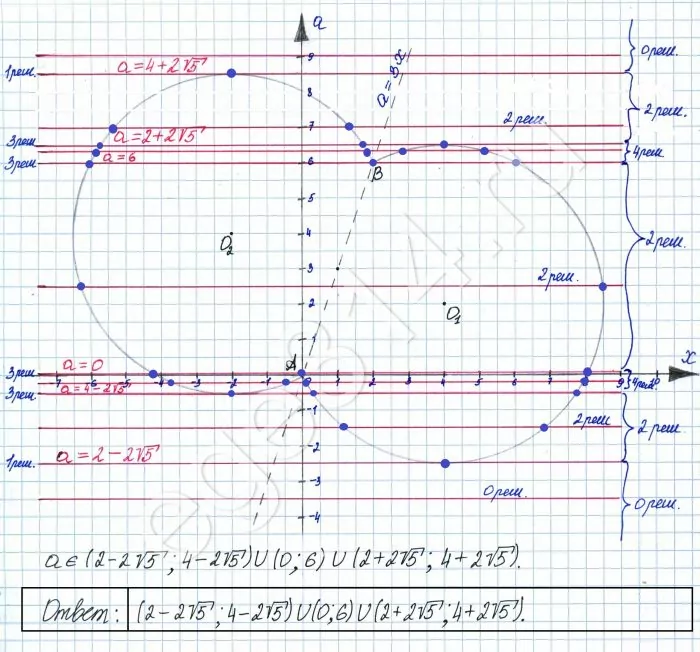 a
9
0 реш.
1 реш.
a = 4 + 2√5
8
a = 3x
2 реш.
7
2 реш.
a = 2 + 2√5
3 реш.
a = 6
4 реш.
3 реш.
6
B
5
4
O₂
2 реш.
3
2 реш.
2
O₁
1
A
x
3 реш.
a = 0
-7 -6 -5 -4 -3 -2 -1 0 1 2 3 4 5 6 7 8 9 10
3 реш.
a = 4 - 2√5
4 реш.
-1
2 реш.
2 реш.
-2
1 реш.
a = 2 - 2√5
-3
0 реш.
0 реш.
-4
ege314.ru
a ∈ (2-2√5; 4-2√5) ∪ (0; 6) ∪ (2+2√5; 4+2√5).
Ответ: (2-2√5; 4-2√5) ∪ (0; 6) ∪ (2+2√5; 4+2√5).